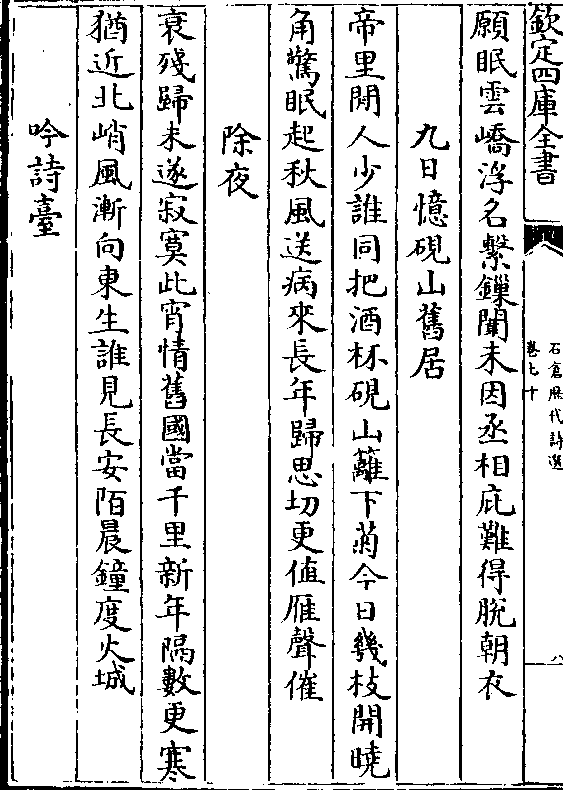 欽定四庫全書
石倉歷代詩選
卷七十
八
願眠雲嶠浮名繫鏁聞未因丞相庇難得脫朝衣
九日憶硯山舊居
帝里閒人少誰同把酒杯硯山籬下菊今日幾枝開曉
角驚眠起秋風送病來長年歸思切更值雁聲催
除夜
衰殘歸未遂寂寞此宵情舊國當千里新年隔數更寒
猶近北峭風漸向東生誰見長安陌晨鐘度火城
吟詩臺